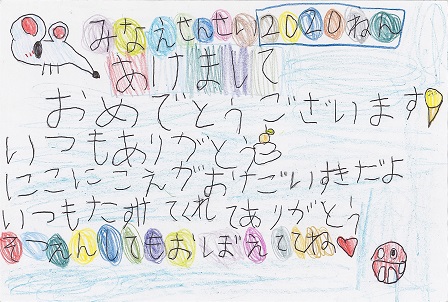 みなえさんさい2020ねん
あけまして
おめでとうございます
いつもありがとう
にこにこえがおだいすきだよ
いつもたすけてくれてありがとう
そつえんしてもおぼえててね